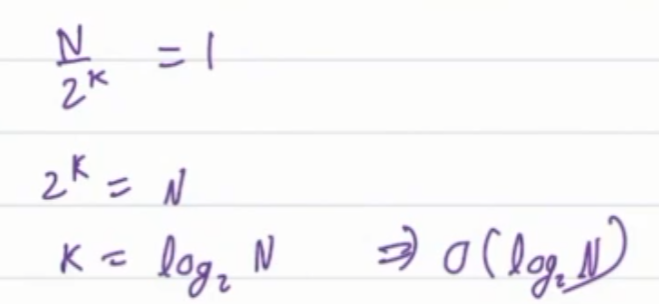 N/2^K = 1
2^K = N
K = log₂ N ⇒ O(log₂ N)